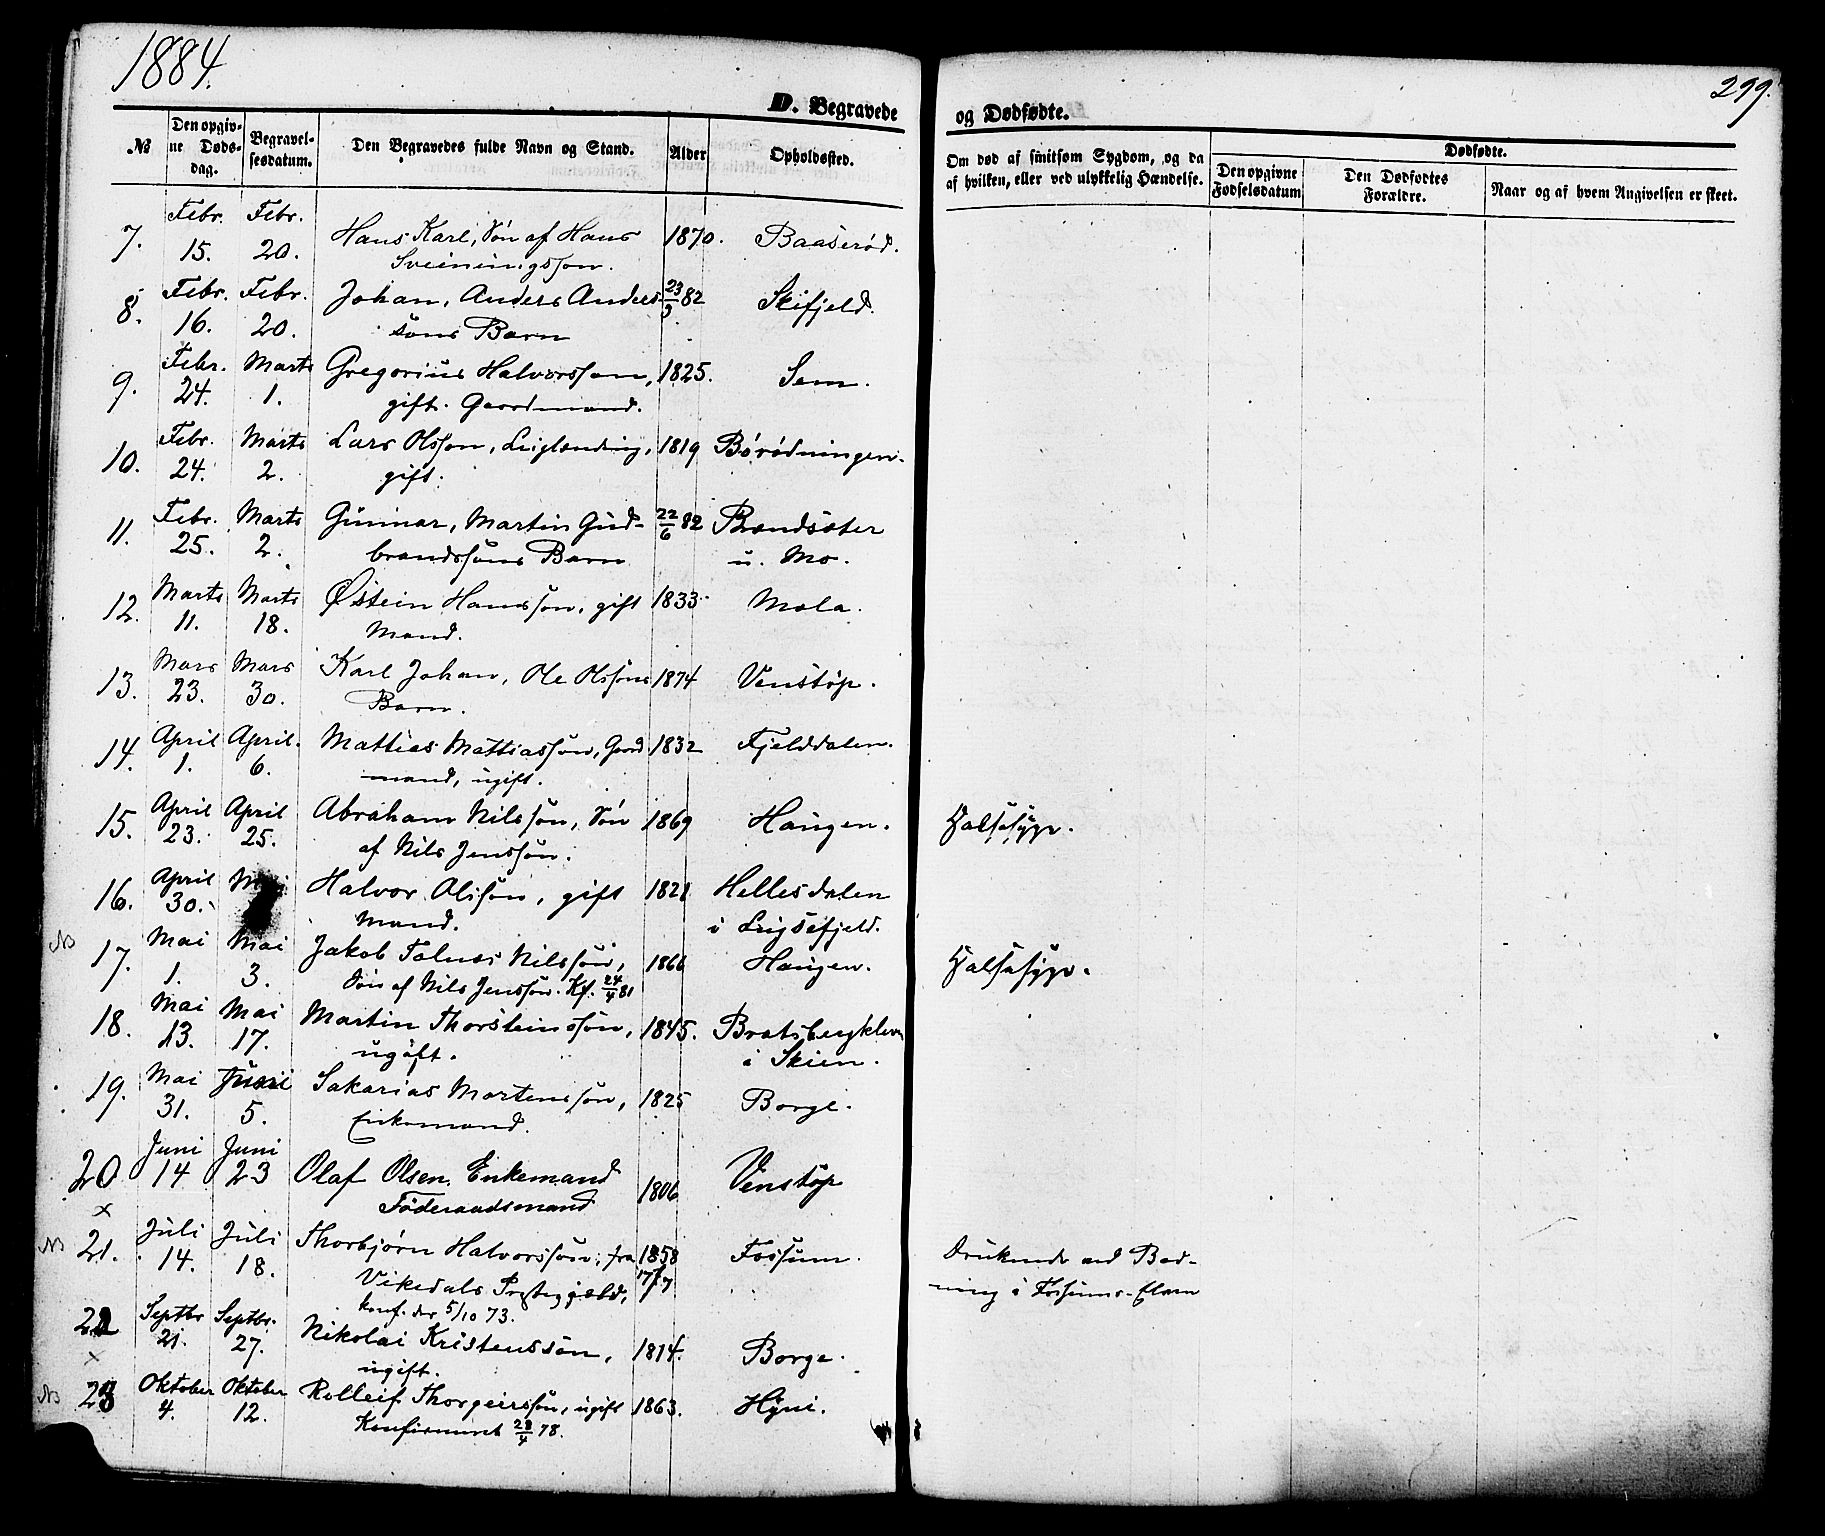 1884.
299.
D. Begravede
og Dødfødte.
№
Den opgivne Dødsdag.
Begravelsesdatum.
Den Begravedes fulde Navn og Stand.
Alder
Opholdssted.
Om død af smitsom Sygdom, og da
af hvilken, eller ved ulykkelig Hændelse.
Dødfødte.
Den opgivne
Fødselsdatum
Den Dødfødtes
Forældre.
Naar og af hvem Angivelsen er skeet.
7. Febr. 15. Febr. 20. Hans Karl, Søn af Hans 1870. Baaserød.
Sveinungssøn.
8. Febr. 16. Febr. 20. Johan, Anders Anders- 82 Skifjeld.
søns Barn
9. Febr. 24. Marts 1. Gregorius Halvorssøn, 1825. Sem.
gift. Gaardmand.
10. Febr. 24. Marts 2. Lars Olssøn, 1819 Børødningen.
gift.
11. Febr. 25. Marts 2. Gunnar, Martin Gud- 22/6 82 Brændsæter
brandssøns Barn u. Mo.
12. Marts 11. Marts 18. Østein Hanssøn, gift 1833. Mæla.
Mand.
13. Mars 23. Mars 30. Karl Johan, Ole Olssøns 1874 Venstøp.
Barn.
14. April 1. April. 6. Mattias Mattiassøn, Gaard 1832 Fjelddalen.
mand, ugift.
15. April 23. April 25. Abraham Nilssøn, Søn 1869 Haugen. Halssyge.
af Nils Jenssøn.
16. April 30. Mai Halvor Olssøn, gift 1821 Hellesdalen
Mand. i Luksefjeld.
NB 17. Mai 1. Mai 3. Jakob Talnæs Nilssøn, 1866 Haugen. Halssyge.
Søn af Nils Jenssøn. Kf. 24/4 81
18. Mai 13. Mai 17. Martin Thorsteinssøn, 1845. Bratsbergkleven
ugift. i Skien.
19. Mai 31. Juni 5. Sakarias Mortenssøn, 1825 Borge.
Enkemand.
20 Juni 14 Juni 23 Olaf Olsen. Enkemand 1806 Venstøp
× Föderaadsmand
NB 21. Juli 14. Juli 18. Thorbjørn Halvorssøn, fra 1858 Fossum. Druknede ved Bad-
Vikedals Præstegjæld, 17/7 ning i Fossums-Elven
konf. der 5/10 73.
22 Septbr 21. Septbr. 27. Nikolai Kristenssøn, 1814. Borge.
× ugift.
NB 23 Oktober 4. Oktober 12. Rolleif Thorgeirssøn, ugift 1863. Hyni.
Konfirmeret 28/4 78.